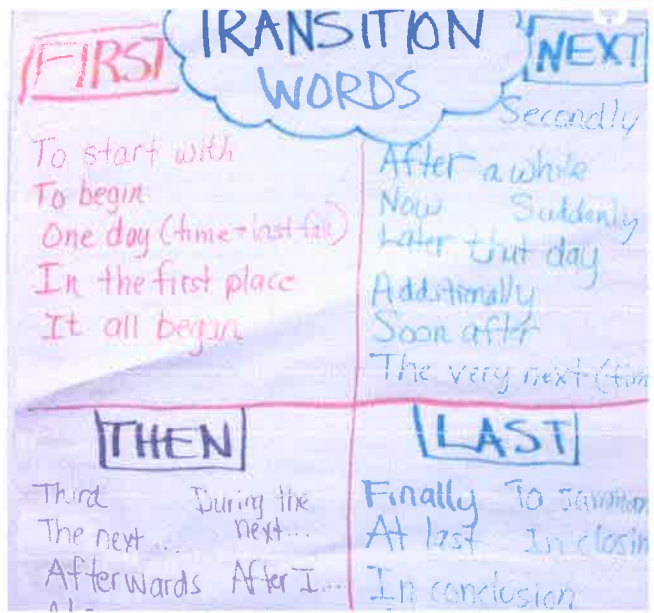 TRANSITION
WORDS
FIRST
To start with
To begin
One day (time - last fall)
In the first place
It all began
NEXT
Secondly
After a while
Now Suddenly
Later that day
Additionally
Soon after
The very next
THEN
Third During the
The next... next...
Afterwards After I...
LAST
Finally To
At last In
In conclusion